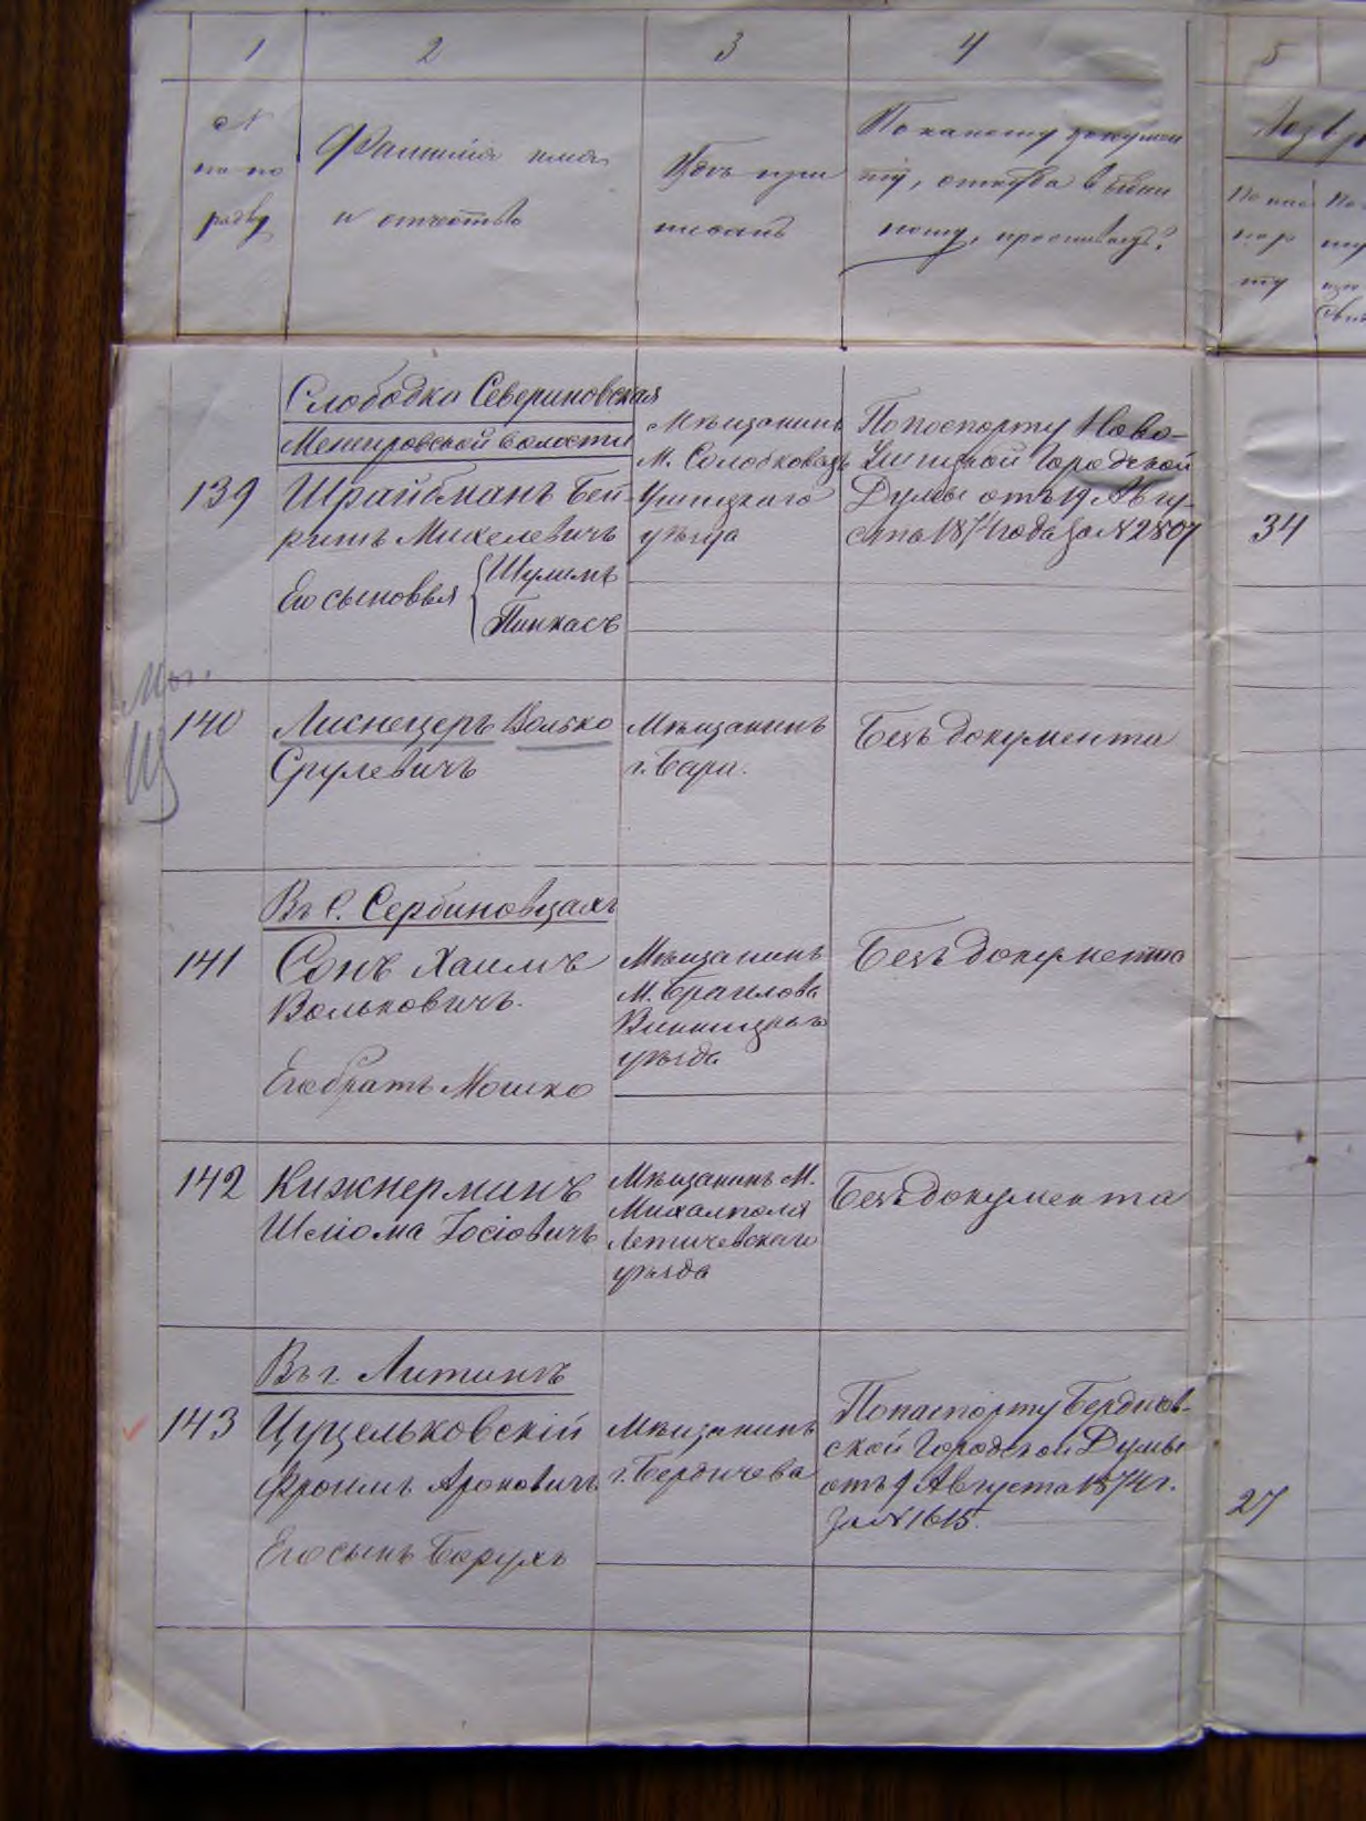 1 2 3 4 5
№ по по рядку
Фамилія имя и отчество
Гдѣ при писанъ
По какому докумен ту, откуда выдан ному, проживаетъ?
По пас пор ту
Слободка Севериновская
Межировской волости
139 Шрайбманъ Бей
ришъ Михелевичъ
Его сыновья { Шулимъ
Пинхасъ
Мѣщанинъ
М. Солобковецъ
Ушицкаго
уѣзда
По паспорту Ново-
Ушицкой Городской
Думы отъ 19 Авгу-
ста 1874 года за № 2807
34
140 Лиснецеръ Волько
Срулевичъ
Мѣщанинъ
г. Бара.
Безъ документа
Въ С. Сербиновцахъ
141 Сонъ Хаимъ
Вольковичъ.
Его братъ Мошко
Мѣщанинъ
М. Браилова
Винницкаго
уѣзда
Безъ документа
142 Кижнерманъ
Шліома Іосіовичъ
Мѣщанинъ М.
Михалполя
Летичевскаго
уѣзда
Безъ документа
Въ г. Литинѣ
143 Цуцельковскій
Фроимъ Ароновичъ
Его сынъ Борухъ
Мѣщанинъ
г. Бердичева
По паспорту Бердичев-
ской Городской Думы
отъ 9 Августа 1874 г.
за № 1615.
27